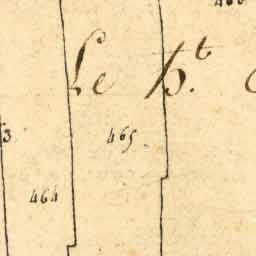 Le h.t
3
465.
464